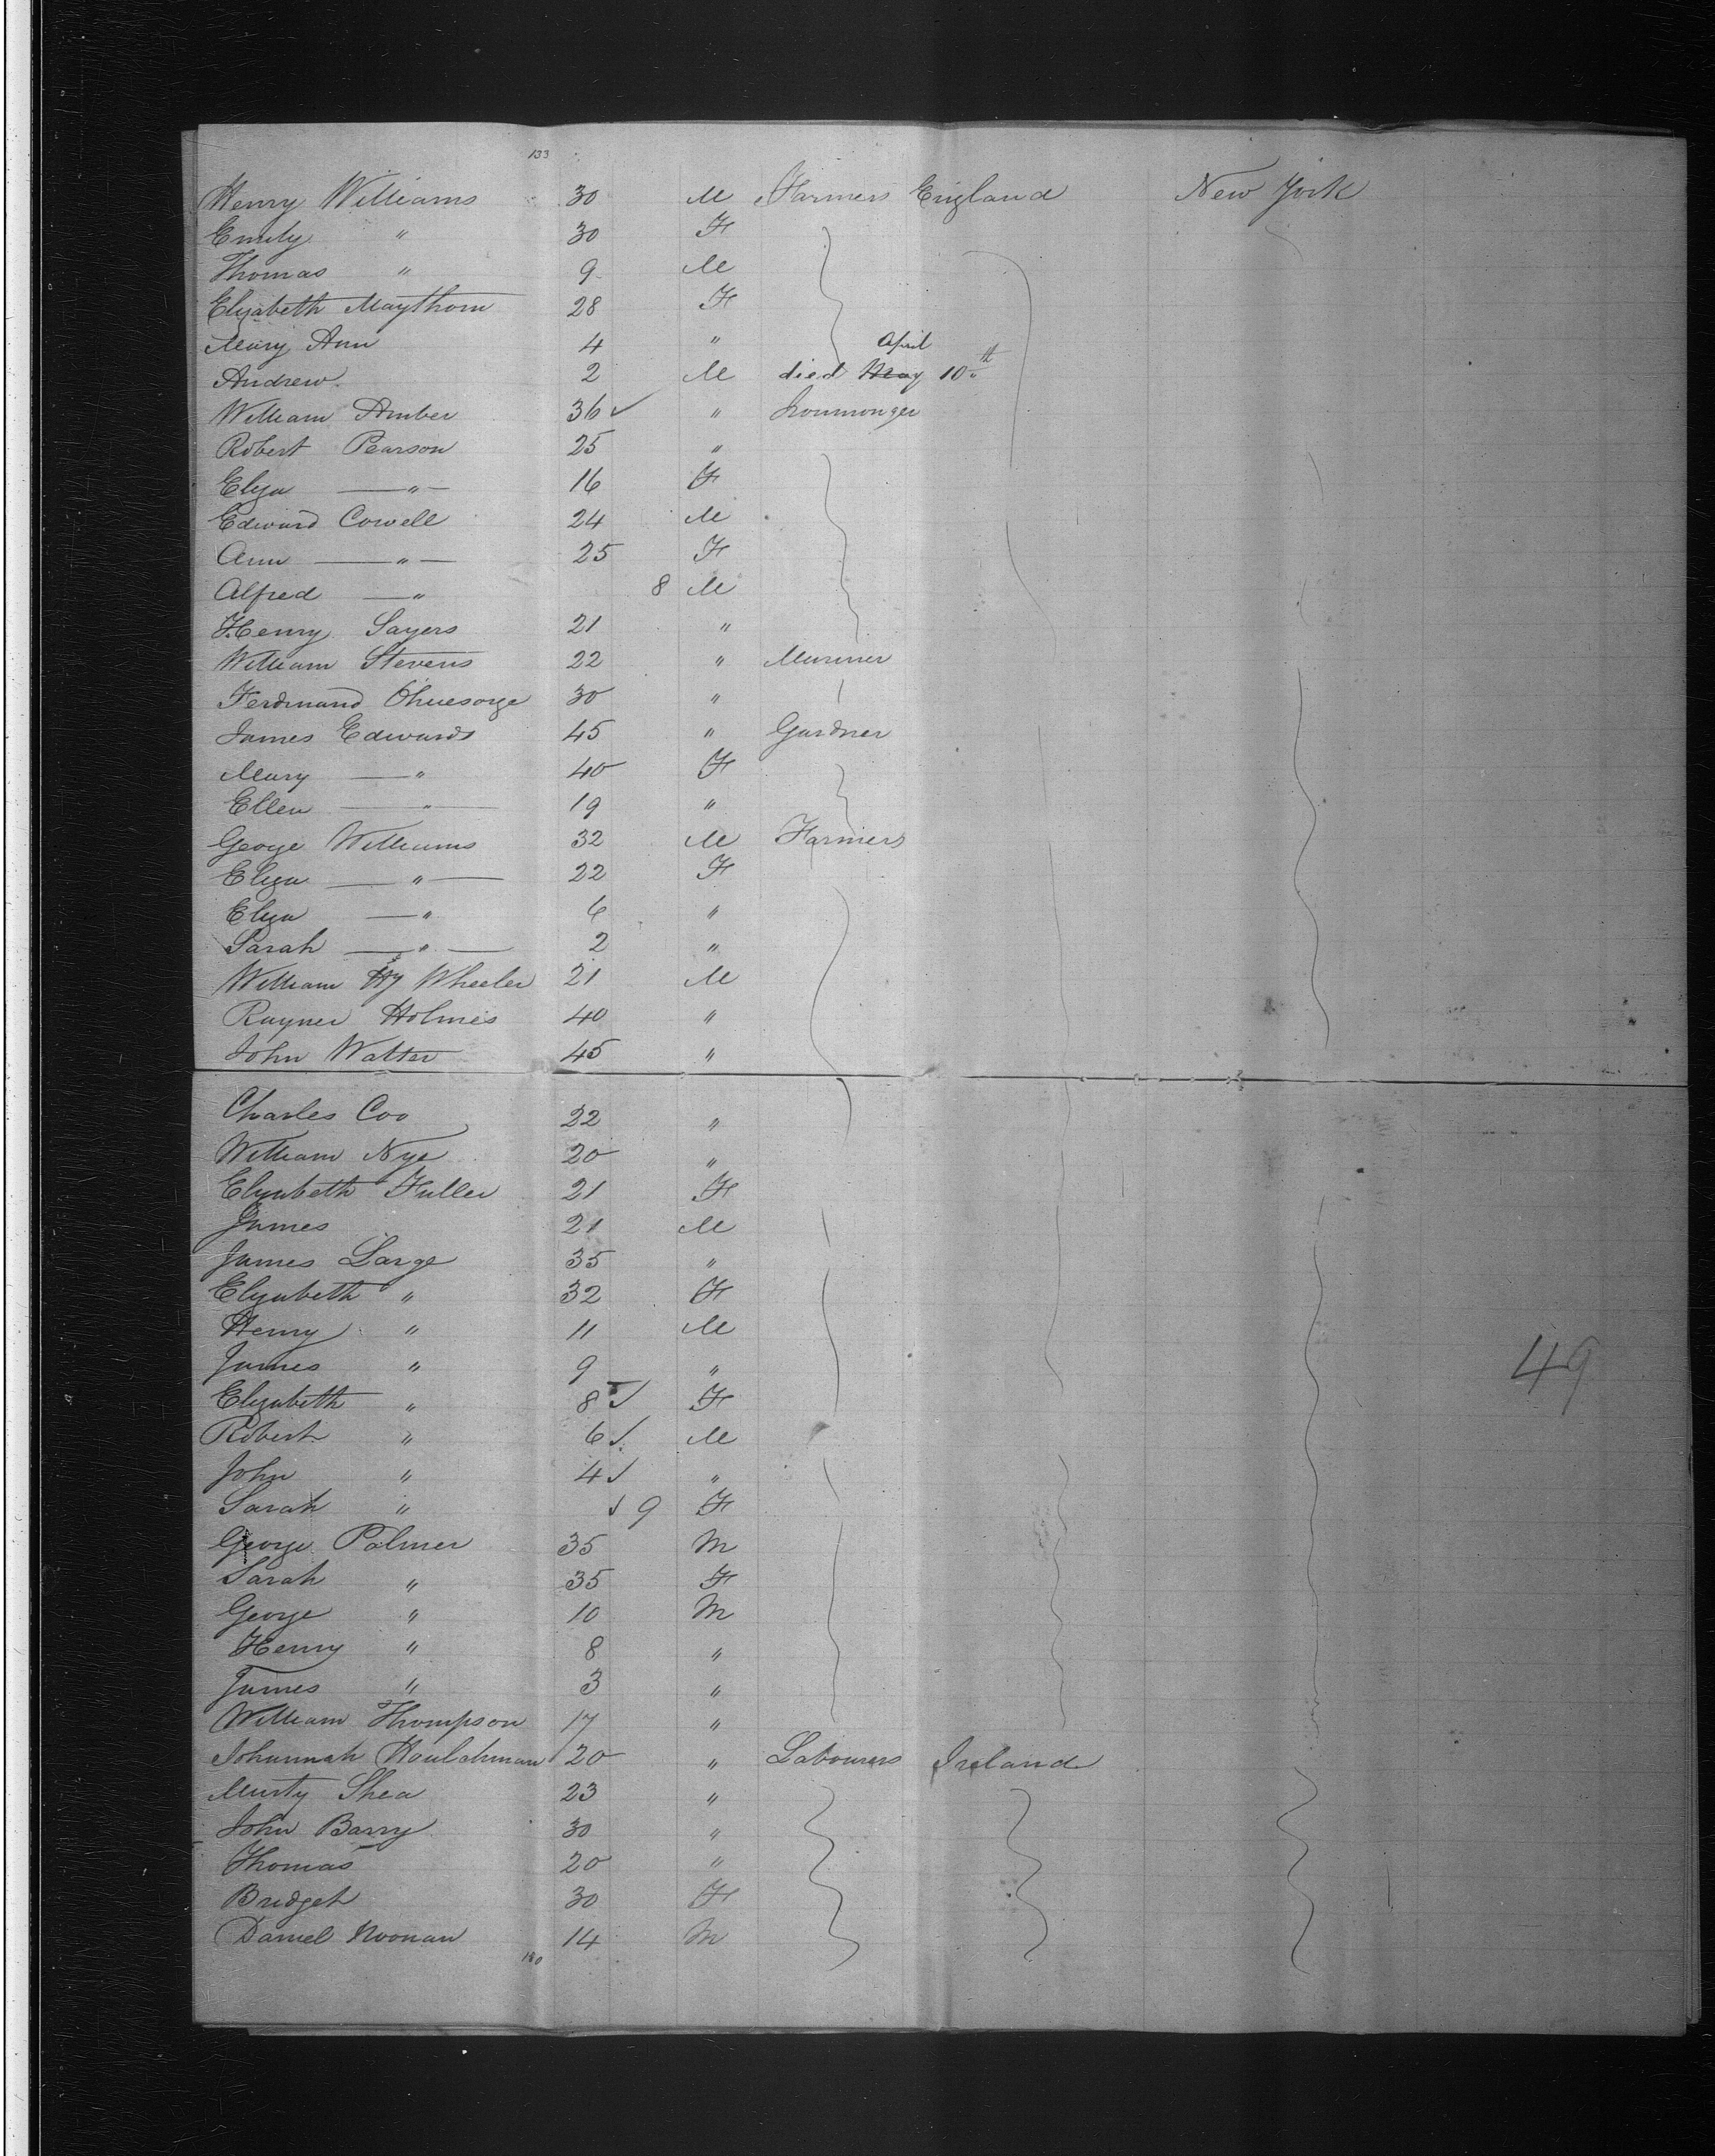 133
Henry Williams 30 M Farmers England New York
Emily " 30 F
Thomas " 9 M
Elizabeth Maythorn 28 F
Mary Ann 4 "
April
Andrew 2 M died May 10th
William Amber 36 ✓ " Ironmonger
Robert Pearson 25 "
Eliza —"— 16 F
Edward Cowell 24 M
Ann —"— 25 F
Alfred —" 8 M
Henry Sayers 21 "
William Stevens 22 " Mariner
Ferdinand Ohnesorge 30 "
James Edwards 45 " Gardner
Mary —" 40 F
Ellen —"— 19 "
George Williams 32 M Farmers
Eliza —"— 22 F
Eliza —" 6 "
Sarah —"— 2 "
William Hy Wheeler 21 M
Rayner Holmes 40 "
John Walter 45 "
Charles Coo 22 "
William Nye 20 "
Elizabeth Fuller 21 F
James 21 M
James Large 35 "
Elizabeth " 32 F
Henry " 11 M
James " 9 "
Elizabeth " 8 ✓ F
Robert " 6 ✓ M
John " 4 ✓ "
Sarah " ✓ 9 F
George Palmer 35 M
Sarah " 35 F
George " 10 M
Henry " 8 "
James " 3 "
William Thompson 17 "
Johannah 20 " Labourers Ireland
Murty Shea 23 "
John Barry 30 "
Thomas 20 "
Bridget 30 F
Daniel Noonan 14 M
180
49